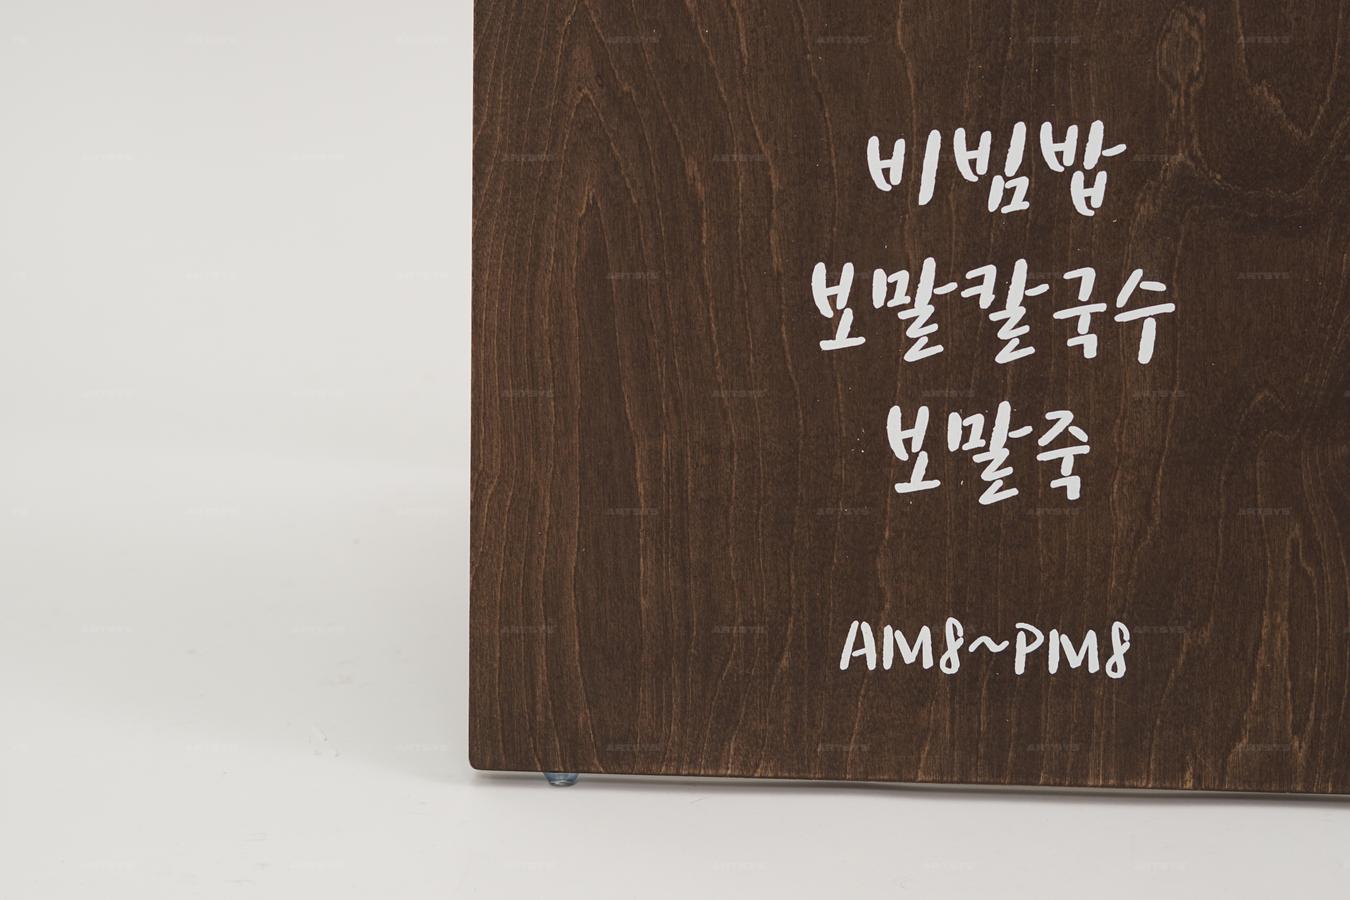 비빔밥
보말칼국수
보말죽
AM8~PM8